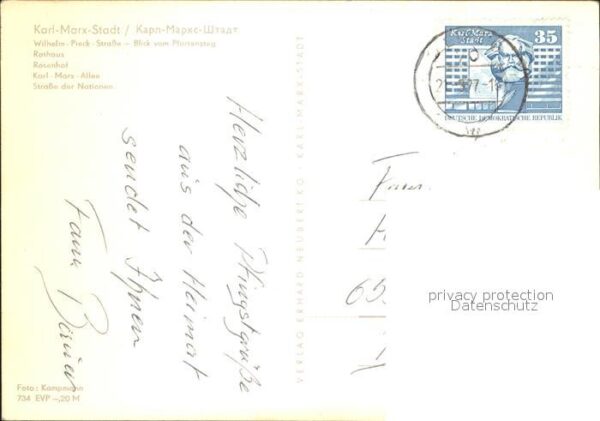 Karl-Marx-Stadt / Карл-Маркс-Штадт
Wilhelm-Pieck-Straße – Blick vom Pfortensteg
Rathaus
Rosenhof
Karl-Marx-Allee
Straße der Nationen
Herzliche Pfingstgrüße
aus der Heimat
sendet Ihnen
Fam.
Foto: Kampmann
734 EVP –,20 M
VERLAG ERHARD NEUBERT KG · KARL-MARX-STADT
Karl-Marx-
Stadt
35
DEUTSCHE DEMOKRATISCHE REPUBLIK
Fam.
privacy protection
Datenschutz